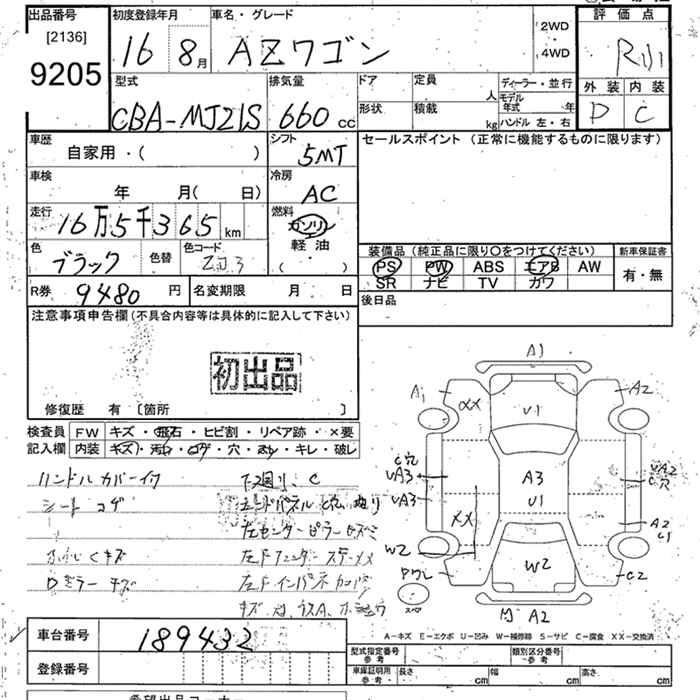 出品番号
[2136]
9205
初度登録年月
16 8月
車名・グレード
AZワゴン
2WD
4WD
評価点
外装 内装
D C
型式
CBA-MJ21S
排気量
660 cc
ドア
形状
定員 人
積載 kg
ディーラー・並行
モデル年式 年
ハンドル 左・右
車歴
自家用・( )
シフト
5MT
セールスポイント (正常に機能するものに限ります)
車検
年 月( 日)
冷房
AC
走行
16万5千365 km
燃料
ガソリン
軽油
( )
色
ブラック
色替
色コード
ZJ3
装備品 (純正品に限り○をつけてください)
PS PW ABS エアB AW
SR ナビ TV カワ
新車保証書
有・無
R券
9480 円
名変期限 月 日
後日品
注意事項申告欄(不具合内容等は具体的に記入して下さい)
初出品
修復歴 有 [箇所 ]
検査員
記入欄
FW キズ・飛石・ヒビ割・リペア跡・×要
内装 キズ・汚・コゲ・穴・・キレ・破レ
ハンドルカバー付
シート コゲ
左センターピラー
左Fフェンダー
左Fインパネ
Dミラー キズ
A1
A1
XX
U1
A2
C穴
UA3
UA3
A3
U1
UA2
A2
XX
W2
W2
C2
スペア
A2
A-キズ E-エクボ U-凹み W-補修跡 S-サビ C-腐食 XX-交換済
車台番号
189432
登録番号
型式指定番号
参考
類別区分番号
参考
車庫証明用
参考
長さ cm
幅 cm
高さ cm
希望出品コーナー